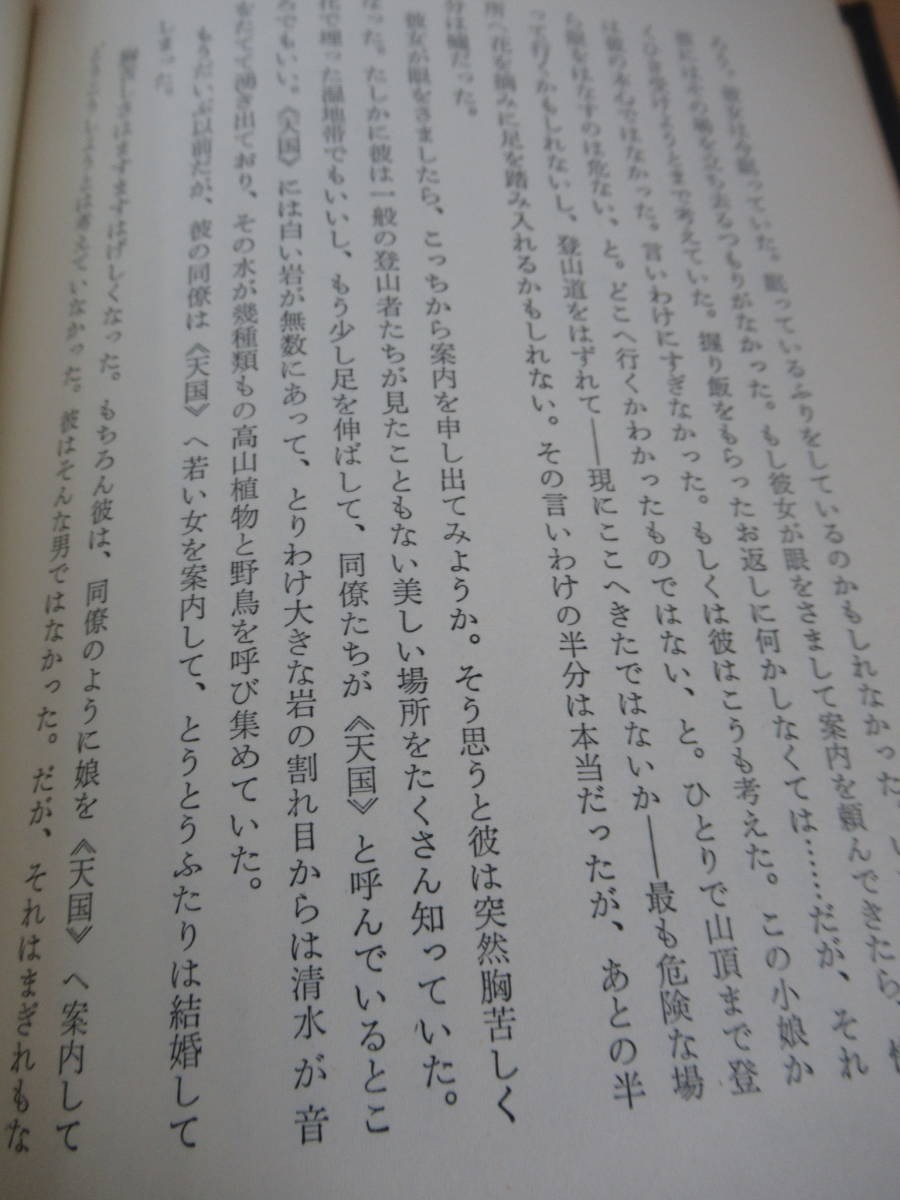 彼女は今眠っていた。眠っているふりをしているのかもしれなかった。
彼にはその場を立ち去るつもりがなかった。もし彼女が眼をさまして案内を頼んできたら、
引き受けようとまで考えていた。握り飯をもらったお返しに何かしなくては……だが、それ
は彼の本心ではなかった。言いわけにすぎなかった。もしくは彼はこうも考えた。この小娘か
ら眼をはなすのは危ない、と。どこへ行くかわかったものではない、と。ひとりで山頂まで登
って行くかもしれないし、登山道をはずれて――現にここへきたではないか――最も危険な場
所へ花を摘みに足を踏み入れるかもしれない。その言いわけの半分は本当だったが、あとの半
分は嘘だった。
彼女が眼をさましたら、こっちから案内を申し出てみようか。そう思うと彼は突然胸苦しく
なった。たしかに彼は一般の登山者たちが見たこともない美しい場所をたくさん知っていた。
花で埋った湿地帯でもいいし、もう少し足を伸ばして、同僚たちが《天国》と呼んでいるとこ
ろでもいい。《天国》には白い岩が無数にあって、とりわけ大きな岩の割れ目からは清水が音
をたてて湧き出ており、その水が幾種類もの高山植物と野鳥を呼び集めていた。
もうだいぶ以前だが、彼の同僚は《天国》へ若い女を案内して、とうとうふたりは結婚して
しまった。
胸苦しさはますますはげしくなった。もちろん彼は、同僚のように娘を《天国》へ案内して
どうこうしようとは考えていなかった。彼はそんな男ではなかった。だが、それはまぎれもな